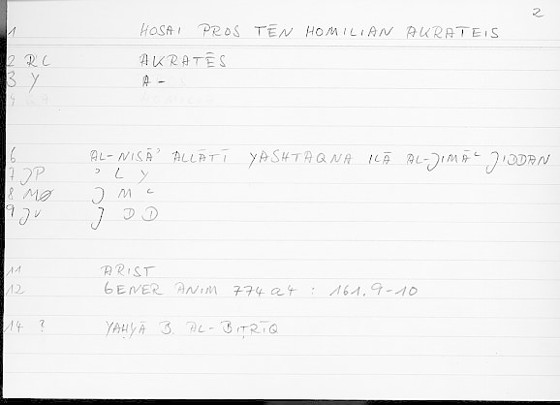 2
1 HOSAI PROS TĒN HOMILIAN AKRATEIS
2 RL AKRATĒS
3 Y A-
6 AL-NISĀʾ ALLĀTĪ YASHTAQNA ILĀ AL-JIMĀʿ JIDDAN
7 JP ʾ L Y
8 MØ J M ʿ
9 JV J D D
11 ARIST
12 GENER ANIM 774a4 : 161.9-10
14 ? YAḤYĀ B. AL-BIṬRĪQ